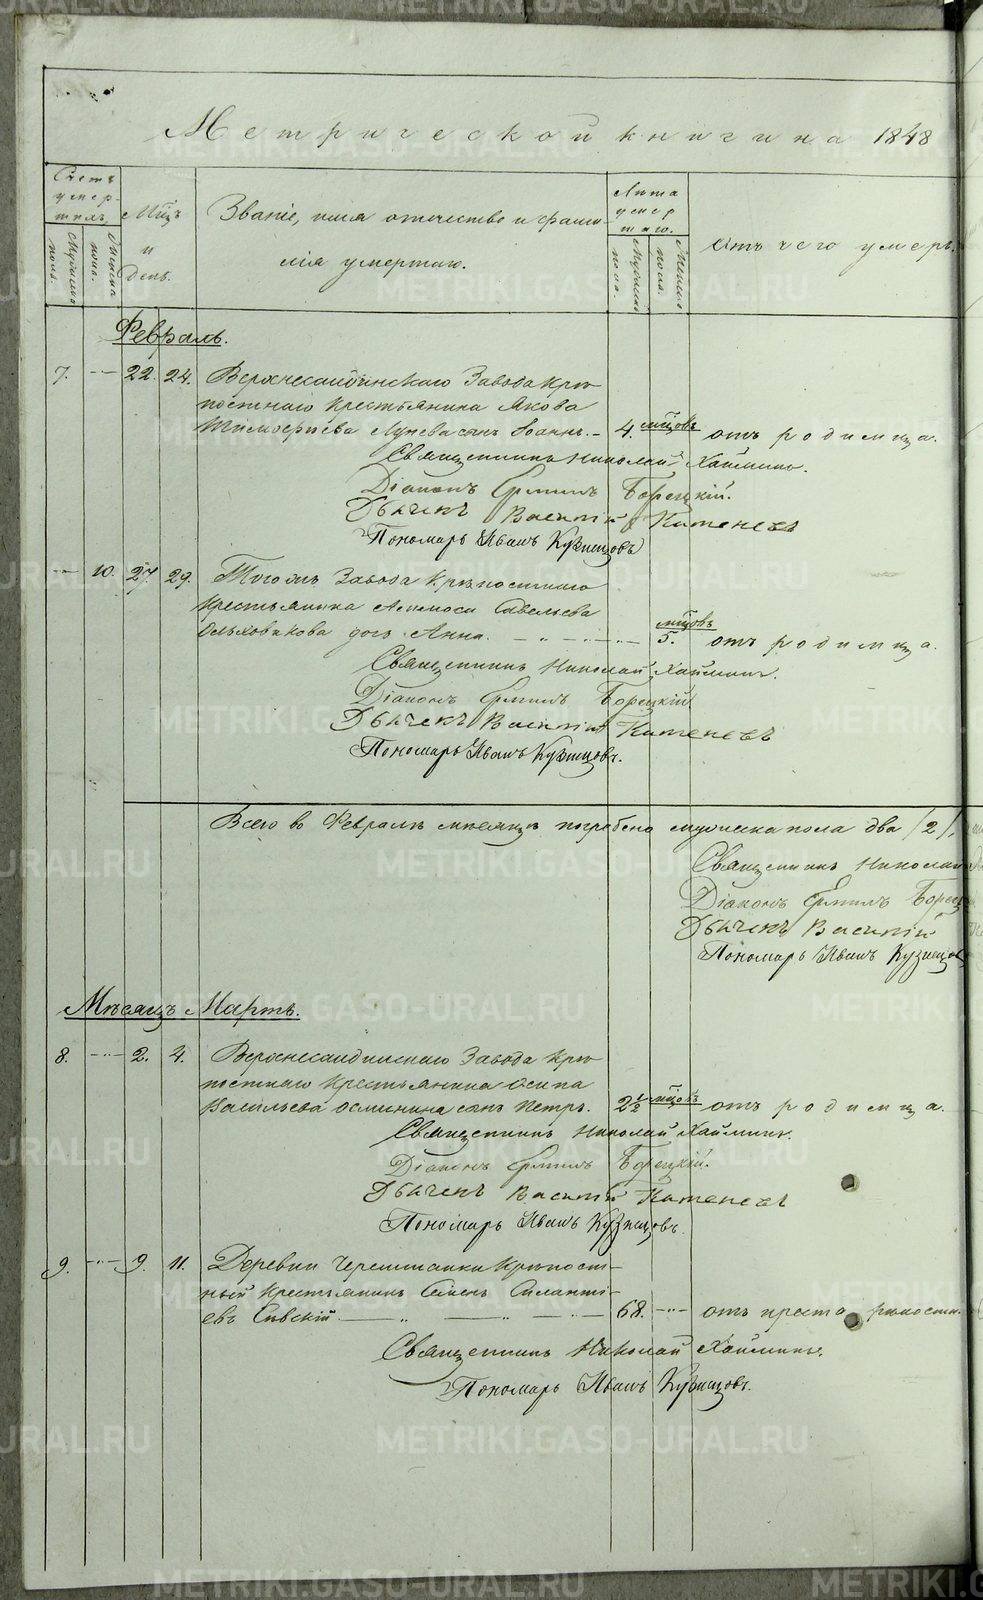 Метрической книги на 1848
Счетъ умер-шихъ.
Мужеска пола.
Женска пола.
Мцъ и День.
Званіе, имя отчество и фами-
лія умершаго.
Лѣта умер шаго.
Мужеска пола.
Женска пола.
Отъ чего умеръ.
Февраль.
7. — 22. 24. Верхнесалдинскаго Завода крѣ-
постнаго крестьянина Якова
Тимофѣева Лунева сынъ Іоаннъ. — 4. мцовъ отъ родимца.
Священникъ Николай Хайминъ.
Діаконъ Ермилъ Борецкій.
Дьячекъ Василій Катеневъ
Пономарь Иванъ Кузнецовъ
— 10. 27. 29. Тогожъ Завода крѣпостнаго
крестьянина Савельева
Ольховикова дочь Анна. — 5. мцовъ отъ родимца.
Священникъ Николай Хайминъ.
Діаконъ Ермилъ Борецкій
Дьячекъ Василій Катеневъ
Пономарь Иванъ Кузнецовъ.
Всего во Февралѣ мѣсяцѣ погребено мужеска пола два /2/,
Священникъ Николай
Діаконъ Ермилъ Борец
Дьячекъ Василій
Пономарь Иванъ Кузнецов
Мѣсяцъ Мартъ.
8. — 2. 4. Верхнесалдинскаго Завода крѣ-
постнаго крестьянина Осипа
Васильева Осминина сынъ Петръ. 2½ мцовъ отъ родимца.
Священникъ Николай Хайминъ.
Діаконъ Ермилъ Борецкій.
Дьячекъ Василій Катеневъ
Пономарь Иванъ Кузнецовъ.
9. — 9. 11. Деревни крѣпост-
ный крестьянинъ Семенъ Силанті-
евъ Сивскій. — 68. — отъ проста
Священникъ Николай Хайминъ.
Пономарь Иванъ Кузнецовъ.
METRIKI.GASO-URAL.RU